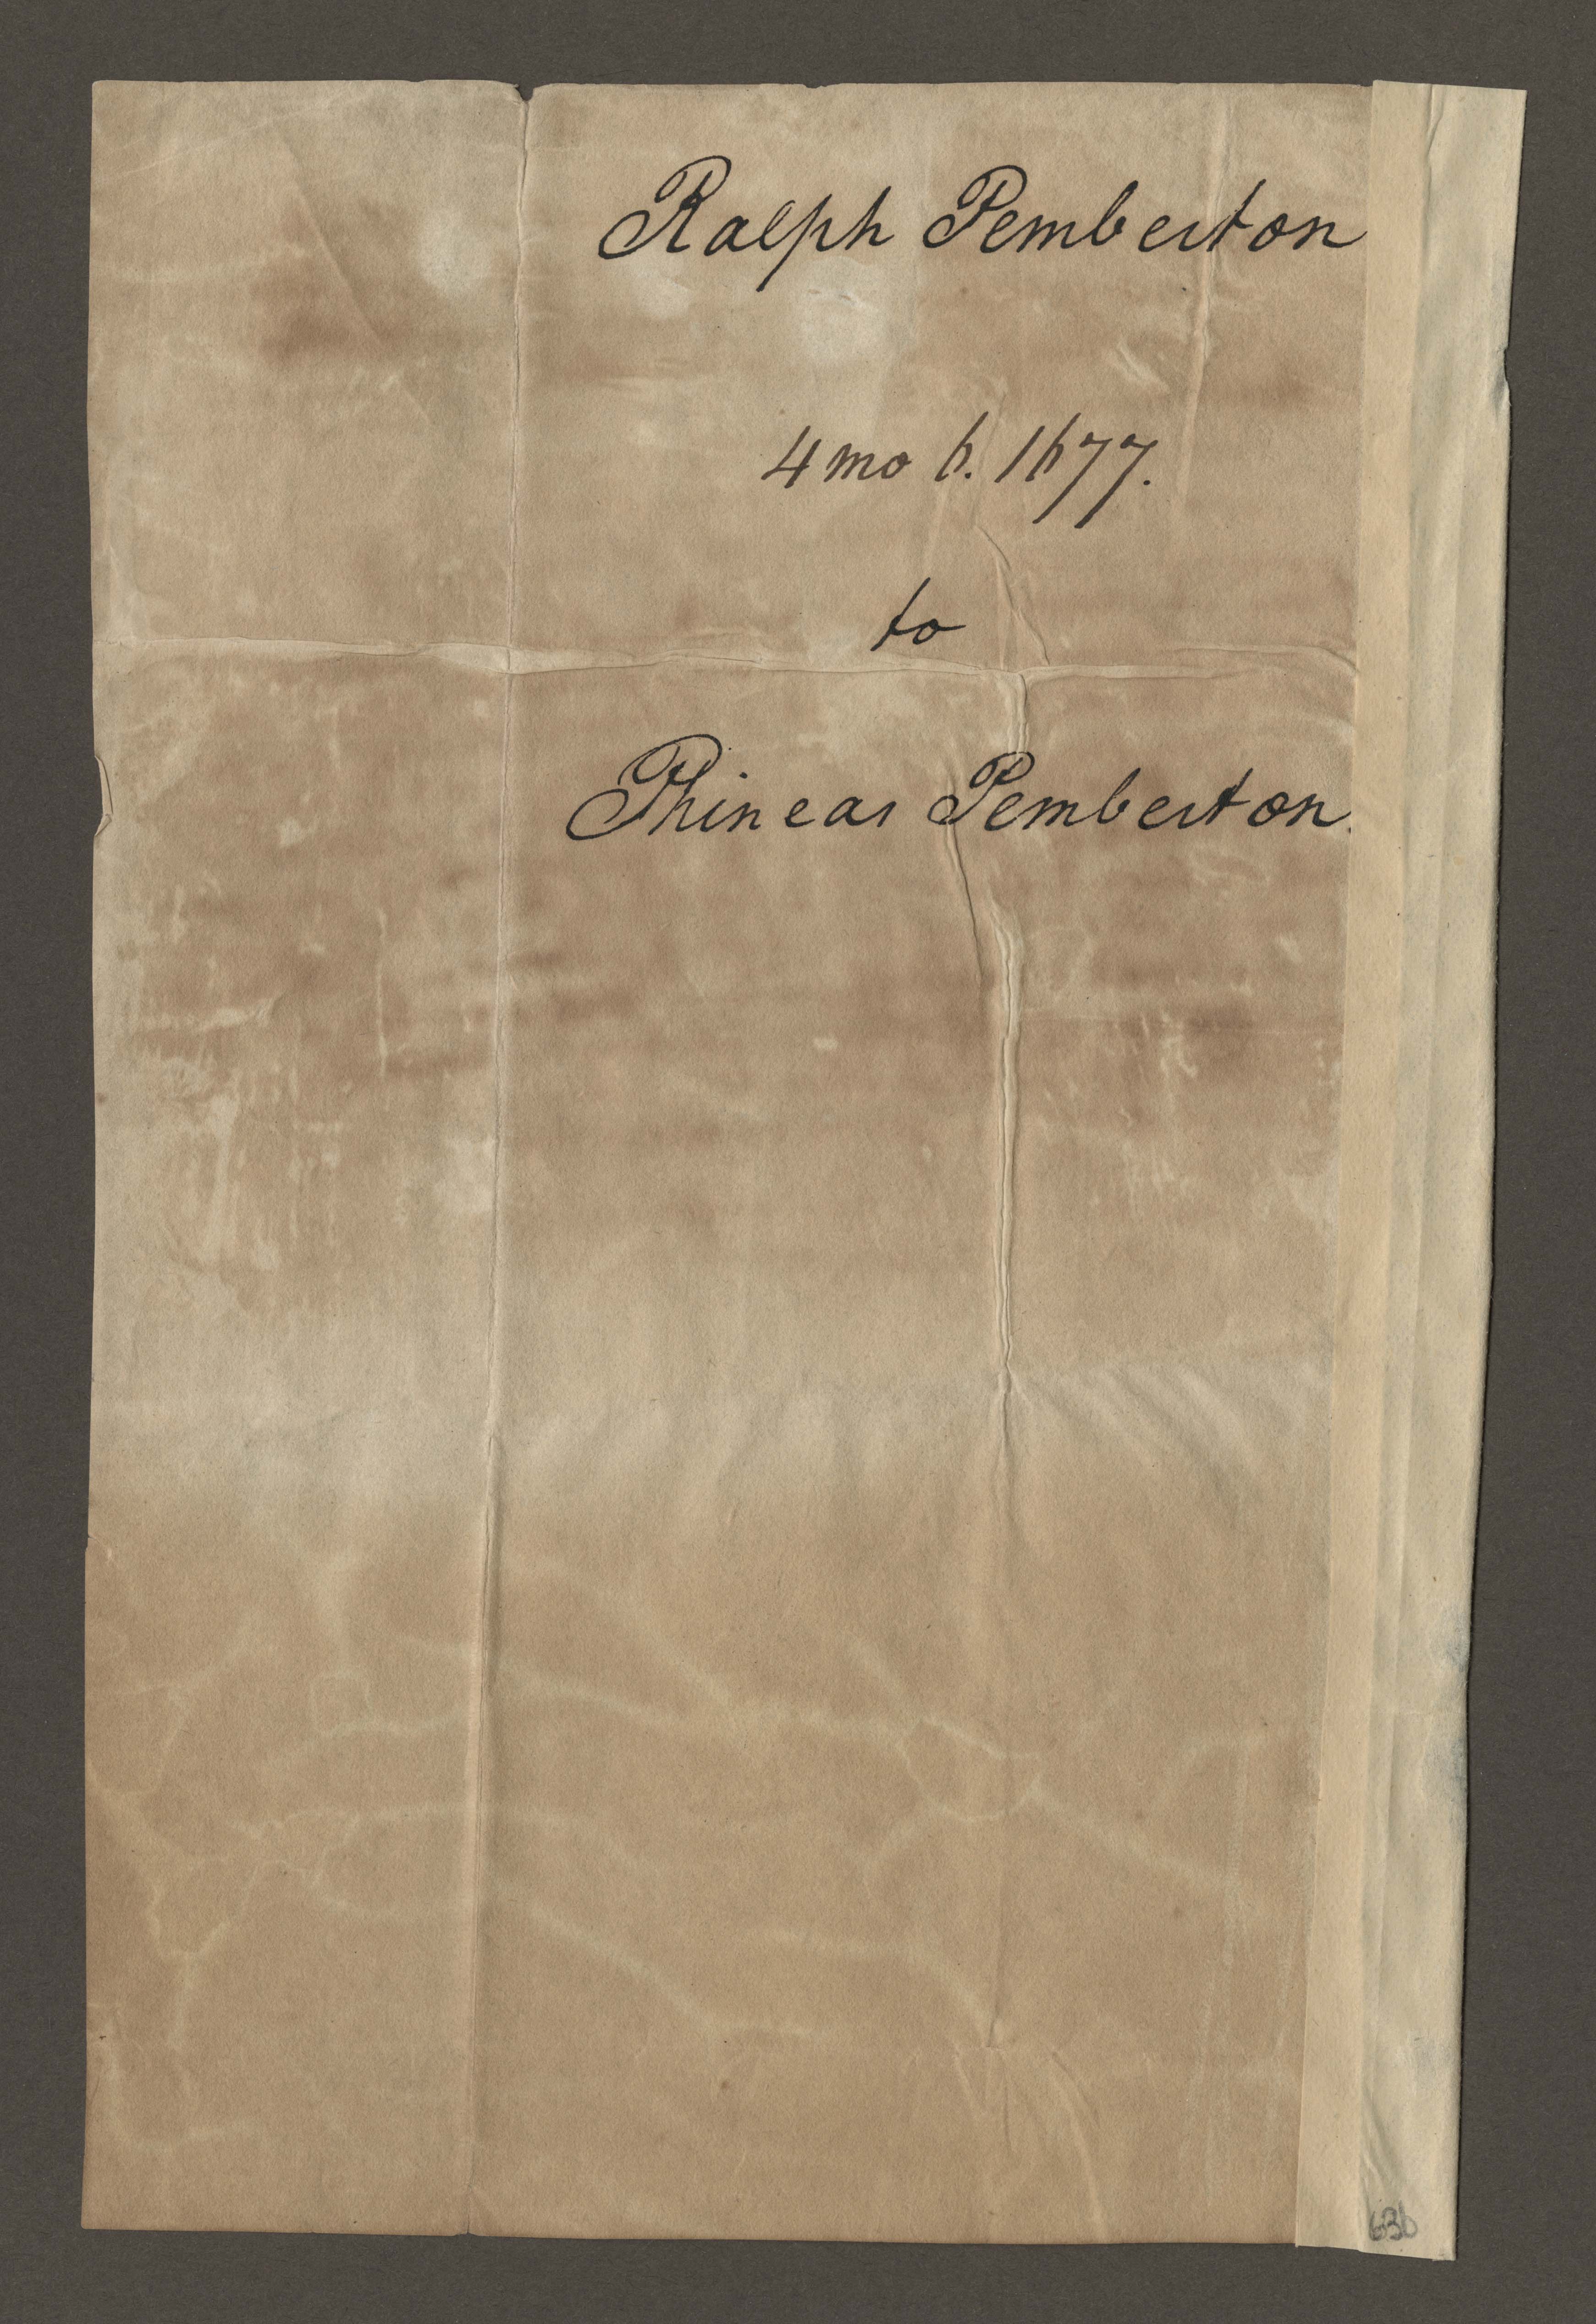 Ralph Pemberton
4 mo 6. 1677.
to
Phineas Pemberton.
63b